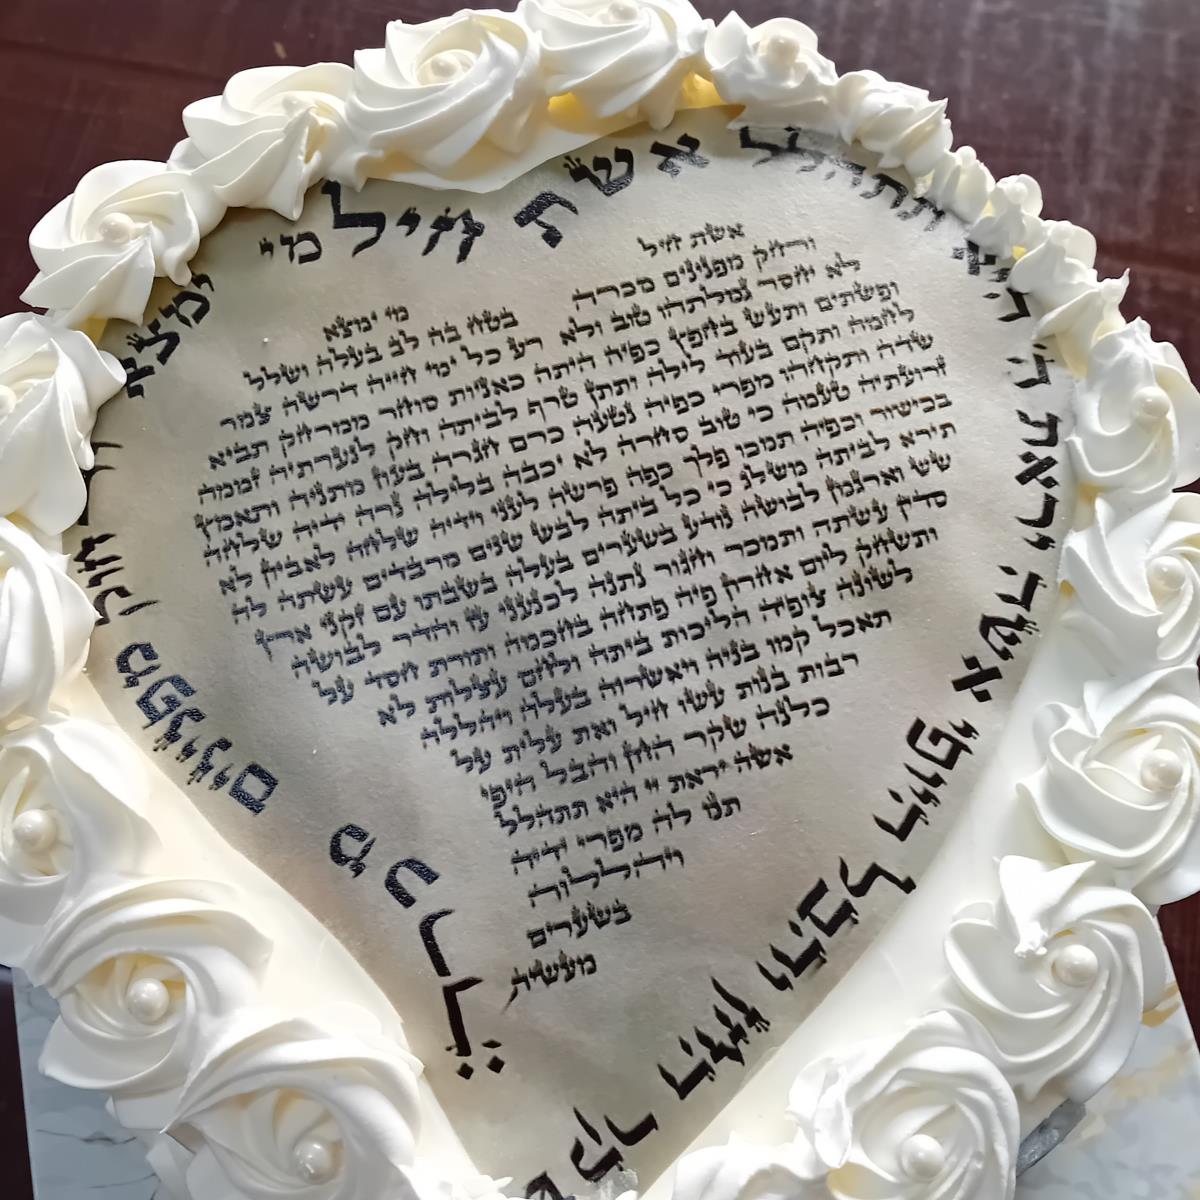 אשת חיל מי ימצא
מפנינים
שקר החן והבל היופי אשה יראת ה' היא תתהלל
אשת חיל מי ימצא
ורחק מפנינים מכרה בטח בה לב בעלה ושלל
לא יחסר גמלתהו טוב ולא רע כל ימי חייה דרשה צמר
ופשתים ותעש בחפץ כפיה היתה כאניות סוחר ממרחק תביא
לחמה ותקם בעוד לילה ותתן טרף לביתה וחק לנערתיה זממה
שדה ותקחהו מפרי כפיה נטעה כרם חגרה בעוז מתניה ותאמץ
זרועתיה טעמה כי טוב סחרה לא יכבה בלילה נרה ידיה שלחה
בכישור וכפיה תמכו פלך כפה פרשה לעני וידיה שלחה לאביון לא
תירא לביתה משלג כי כל ביתה לבש שנים מרבדים עשתה לה
שש וארגמן לבושה נודע בשערים בעלה בשבתו עם זקני ארץ
סדין עשתה ותמכר וחגור נתנה לכנעני עז והדר לבושה
ותשחק ליום אחרון פיה פתחה בחכמה ותורת חסד על
לשונה צופיה הליכות ביתה ולחם עצלות לא
תאכל קמו בניה ויאשרוה בעלה ויהללה
רבות בנות עשו חיל ואת עלית על
כלנה שקר החן והבל היפי
אשה יראת יי היא תתהלל
תנו לה מפרי ידיה
ויהללוה
בשערים
מעשיה